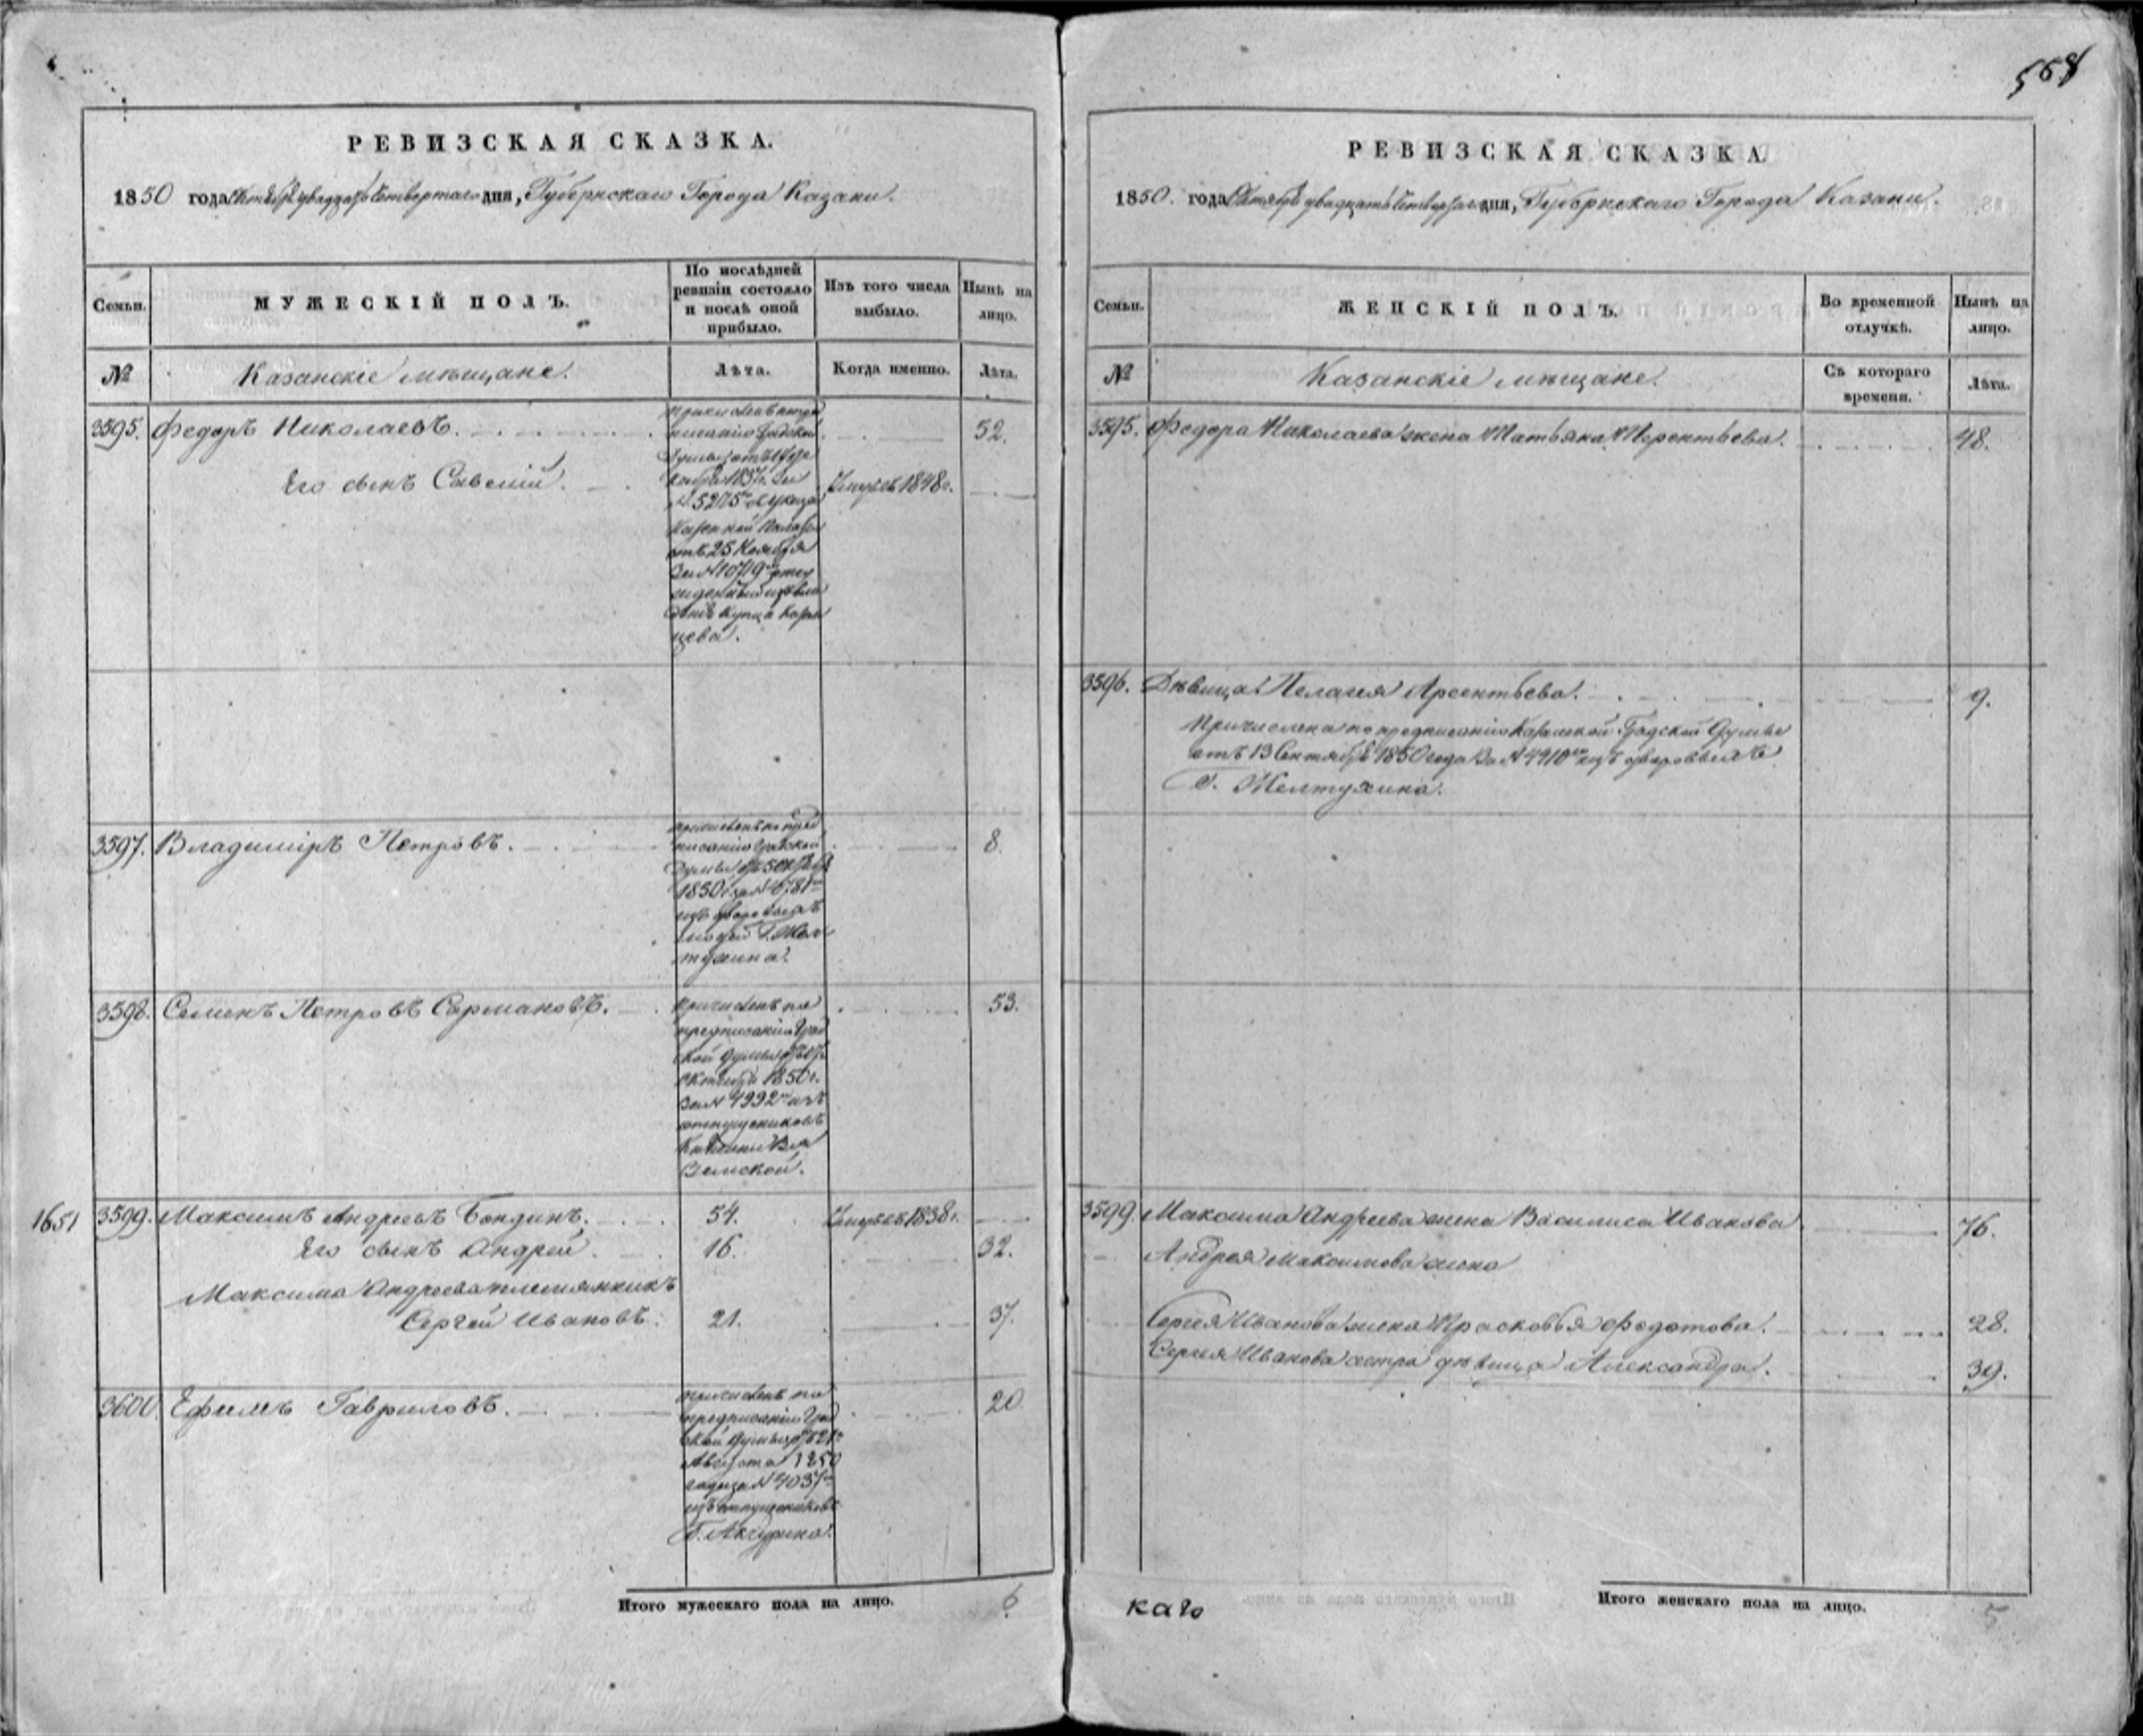 568
РЕВИЗСКАЯ СКАЗКА.
1850 года Октября двадцать четвертаго дня, Губернскаго Города Казани.
Семьи.
МУЖЕСКІЙ ПОЛЪ.
По послѣдней ревизіи состояло и послѣ оной прибыло.
Изъ того числа выбыло.
Нынѣ на лицо.
№
Казанскіе мѣщане.
Лѣта.
Когда именно.
Лѣта.
3595. Федоръ Николаевъ. 52.
Его сынъ Савелій. Умеръ въ 1848 г.
Казенной Палаты
отъ 25 Ноября
За № 10719
купца
цева.
3597. Владиміръ Петровъ. 8.
писанію Градской
Думы
1850 г. за №
изъ дворовыхъ
людей Г. Жел
тухина.
3598. Семенъ Петровъ Сармановъ. 53.
Причисленъ по
предписанію Град
ской Думы
Октября 1850 г.
За № 4992 изъ
отпущениковъ
Княгини Вя
Земской.
1651
3599. Максимъ Андреевъ Бондинъ. 54. Умеръ въ 1838 г.
Его сынъ Андрей. 16. 32.
Максима Андреева племянникъ
Сергей Ивановъ. 21. 37.
3600. Ефимъ Гавриловъ. 20
причисленъ по
предписанію Град
ской Думы
Августа 1850
года за № 4037
изъ отпущениковъ
Г.
Итого мужескаго пола на лицо. 6
РЕВИЗСКАЯ СКАЗКА
1850. года Октября двадцать четвертаго дня, Губернскаго Города Казани.
Семьи.
ЖЕНСКІЙ ПОЛЪ.
Во временной отлучкѣ.
Нынѣ на лицо.
№
Казанскіе мѣщане.
Съ котораго времени.
Лѣта.
3595. Федора Николаева жена Татьяна Терентьева. 48.
3596. Дѣвица Пелагея Арсентьева. 9.
Причислена по предписанію Казанской Градской Думы
отъ 13 Сентября 1850 года За № 4410 изъ дворовыхъ
Г. Желтухина.
3599. Максима Андреева жена Василиса Иванова 76.
Андрея Максимова жена
Сергея Иванова жена Прасковья Федотова. 28.
Сергея Иванова сестра дѣвица Александра. 39.
каго
Итого женскаго пола на лицо. 5